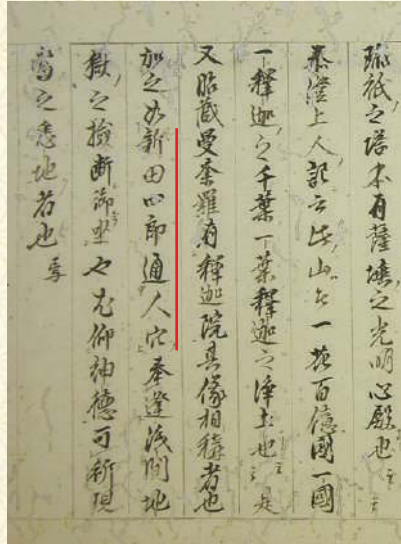 孫祇之塔本有薩埵之光明心殿也
泰澄上人記云此山者一花百億國一國
一釋迦之千葉一葉釋迦之浄土也是
又胎蔵曼荼羅有釋迦院其像相稱者也
加之如新田四郎通人穴奉逢浅間地
獄之撿断御坐也尤仰神徳可祈現
當之悉地者也